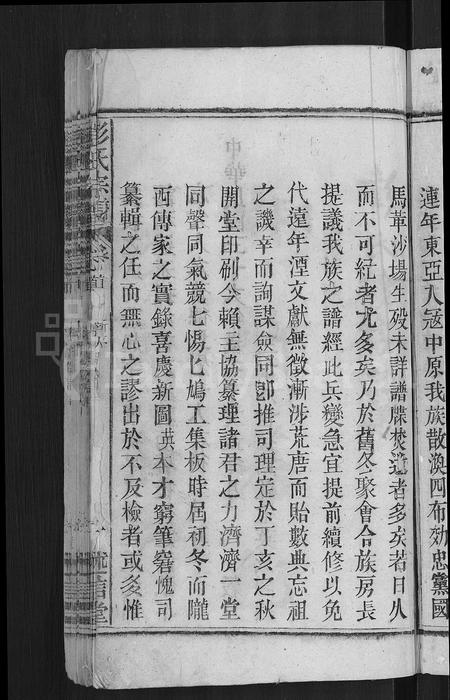 連年東亞入寇中原我族散渙四布効忠黨國
馬革沙場生殁未詳譜牒焚遺者多矣若日久
而不可紀者尤多矣乃於舊冬聚會合族房長
提議我族之譜經此兵變急宜提前續修以免
代遠年湮文獻無徵漸涉荒唐而貽數典忘祖
之譏幸而詢謀僉同卽推司理定於丁亥之秋
開堂印刷今賴主協纂理諸君之力濟濟一堂
同聲同氣兢七惕匕鳩工集板時屆初冬而隴
西傳家之實錄喜慶新圖英本才窮筆窘愧司
纂輯之任而無心之謬出於不及檢者或多惟
彭氏宗譜
卷首
一 述信堂